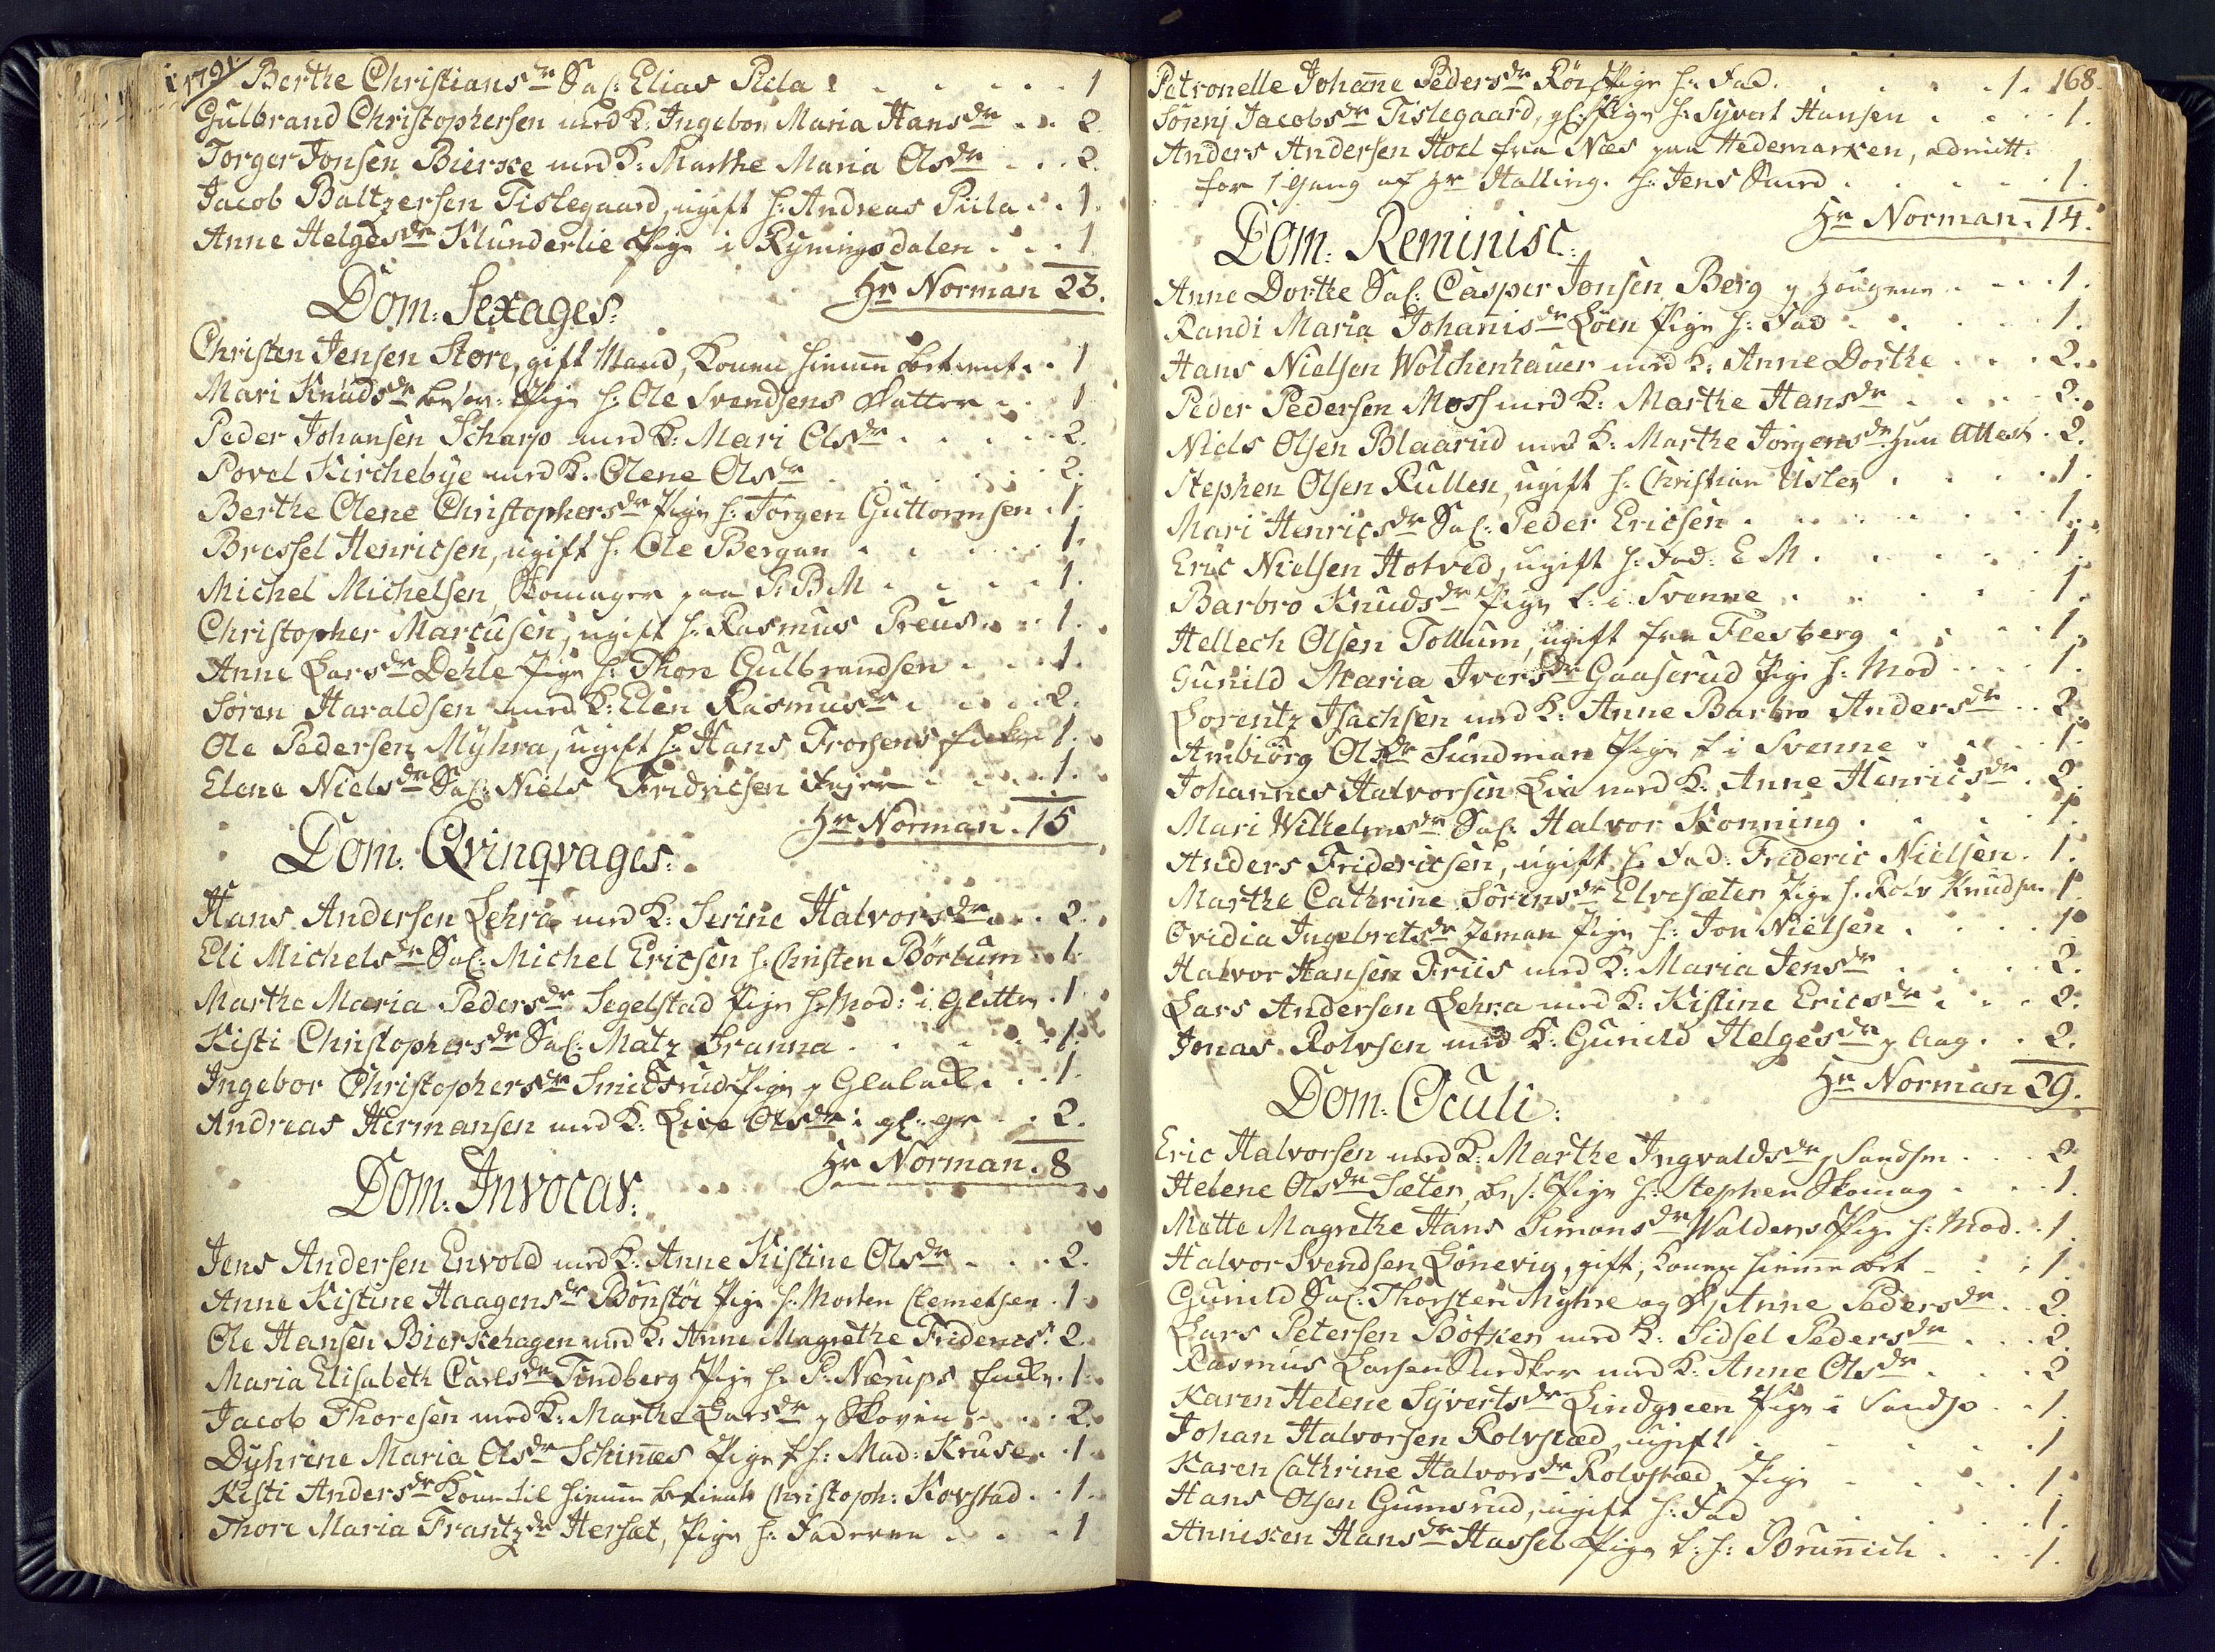 1791. Berthe Christiansdr Sal: Elias Piila . . . . . 1
Gulbrand Christophersen med K: Ingebor Maria Hansdr . . 2.
Torger Jonsen Bierke med K: Marthe Maria Olsdr . . . 2.
Jacob Baltzersen Tislegaard, ugift h: Andreas Piila . . 1.
Anne Helgesdr Klunderlie Pige i Rymingsdalen . . . 1
Hr Norman 23.
Dom: Sexages:
Christen Jensen Store, gift Mand, Konen hiemme . . 1
Mari Knudsdr Pige h: Ole Svendsens . . 1
Peder Johansen Scharp med K: Mari Olsdr . . . . 2.
Povel Kirchebye med K. Olene Olsdr . . . . 2.
Berthe Olene Christophersdr Pige h: Torgen Guttormsen . 1.
Bressel Henricsen, ugift h. Ole Bergan . . . . 1.
Michel Michelsen, Skomager paa P: B M . . . . 1.
Christopher Marcusen, ugift h. Rasmus Preus . . 1.
Anne Larsdr Dehle Pige h: Thore Gulbrandsen . . . 1.
Søren Haraldsen med K: Elen Rasmusdr . . . 2.
Ole Pedersen Myhra, ugift h: Hans Frochens 1.
Elene Nielsdr Sal: Niels Fridricsen . . . . 1.
Hr Norman . 15
Dom: Qvinqvages:
Hans Andersen Lehra med K: Serine Halvorsdr . . 2.
Eli Michelsdr Sal: Michel Ericsen h. Christen Börtum . 1.
Marthe Maria Pedersdr Segelstad Pige h: Mod: i Glitter . 1
Kisti Christophersdr Sal: Matz Franna . . . . 1.
Ingebor Christophersdr Smidsrud Pige . . . 1.
Andreas Hermansen med K. Live Olsdr i gl: gr . . 2.
Hr Norman . 8
Dom: Invocav:
Jens Andersen Envold med K: Anne Kistine Olsdr . . . 2.
Anne Kistine Haagensdr Bönstöe Pige h: Morten Clemetsen . 1
Ole Hansen Bierkehagen med K: Anne Magrethe Fridericsd 2.
Maria Elisabeth Carlsdr Tindberg Pige h: P: Nærups . 1.
Jacob Thoresen med K: Marthe Larsdr p Skoven . . . 2.
Dyhrine Maria Olsdr Schinnæs Pige t h: Mad: Kruse . . 1
Kisti Andersdr Kone til hiemme Christoph: Korstad . . 1.
Thore Maria Frantzdr Hersæt, Pige h: Faderen . . . 1
Petronelle Johanne Pedersdr Röi Pige h. Fad. . . . 1. 168.
Sörenj Jacobsdr Tislegaard, gl: Pige h: Syvert Hansen . . . 1.
Anders Andersen Hoel fra Næs paa Hedemarken, admitt:
for 1 Gang af Hr Halling. h: Jens Smed . . . . 1.
Hr Norman . 14.
Dom: Reminisc:
Anne Dorthe Sal: Casper Jonsen Berg p Hougene . . . 1.
Randi Maria Johannisdr Löen Pige h: Fad . . . . 1.
Hans Nielsen Wolchenhauer med K: Anne Dorthe . . . 2.
Peder Pedersen Moss med K: Marthe Hansdr . . . . 2.
Niels Olsen Blaarud med K: Marthe Jörgensdr hun Attest . 2.
Stephen Olsen Rullen, ugift h. Christian Usler . . . . 1.
Mari Henricsdr Sal: Peder Ericsen . . . . . 1.
Eric Nielsen Hotved, ugift h. Fad: E M . . . . 1.
Barbro Knudsdr Pige t: i Svenne . . . . 1.
Hellech Olsen Tollum, ugift fra Flesberg . . . . 1.
Gunild Maria Iversdr Gaaserud Pige h: Mod . . . . 1.
Lorentz Isachsen med K: Anne Barbro Andersdr . . 2.
Ambiörg Olsdr Sundman Pige t i Svenne . . . . 1.
Johannes Halvorsen Lia med K. Anne Henricsdr . 2.
Mari Wilhelmsdr Sal: Halvor Konning . . . . 1.
Anders Fridericsen, ugift h Fad: Frideric Nielsen . 1.
Marthe Cathrine Sörensdr Elvesæter Pige h. Rolv Knudsen 1.
Ovidia Ingebretsdr Zeman Pige h: Jon Nielsen . . . . 1.
Halvor Hansen Friis med K: Maria Jensdr . . . . 2.
Lars Andersen Lehra med K: Kistine Ericsdr . . . 2.
Jonas Rolvsen med K: Gunild Helgesdr p Aag . . 2.
Hr Norman 29.
Dom: Oculi:
Eric Halvorsen med K: Marthe Ingvaldsdr p Sandsm . . . 2
Helene Olsdr Sæter, Pige h: Stephen Skomag . . . 1.
Mette Magrethe Hans Simonsdr Walders Pige h: Mod . . 1.
Halvor Svendsen Lönevig, gift, Konen hiemme . . 1.
Gunild Sal: Thorsten Myhre og Anne Pedersdr . . 2.
Lars Petersen Bötker med K: Sidsel Pedersdr . . . 2.
Rasmus Larsen med K: Anne Olsdr . . . 2
Karen Helene Syvertsdr Lindgreen Pige i Sandsv . . 1.
Johan Halvorsen Rolvstad, ugift . . . . . 1
Karen Cathrine Halvorsdr Rolvstad Pige . . . . 1.
Hans Olsen Gumsrud, ugift h: Fad . . . . . 1.
Anniken Hansdr Hassel Pige t: h: Brunnich . . . 1.